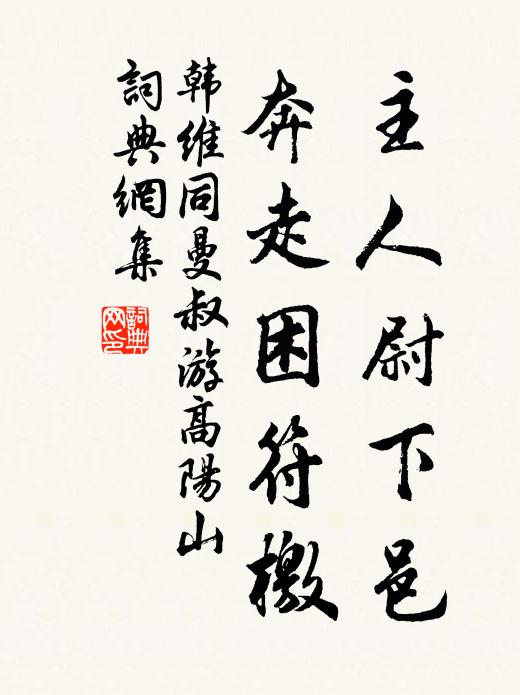 主人尉下邑
奔走困符檄
韩維同曼叔游高陽山
詞典網集
詞典网印